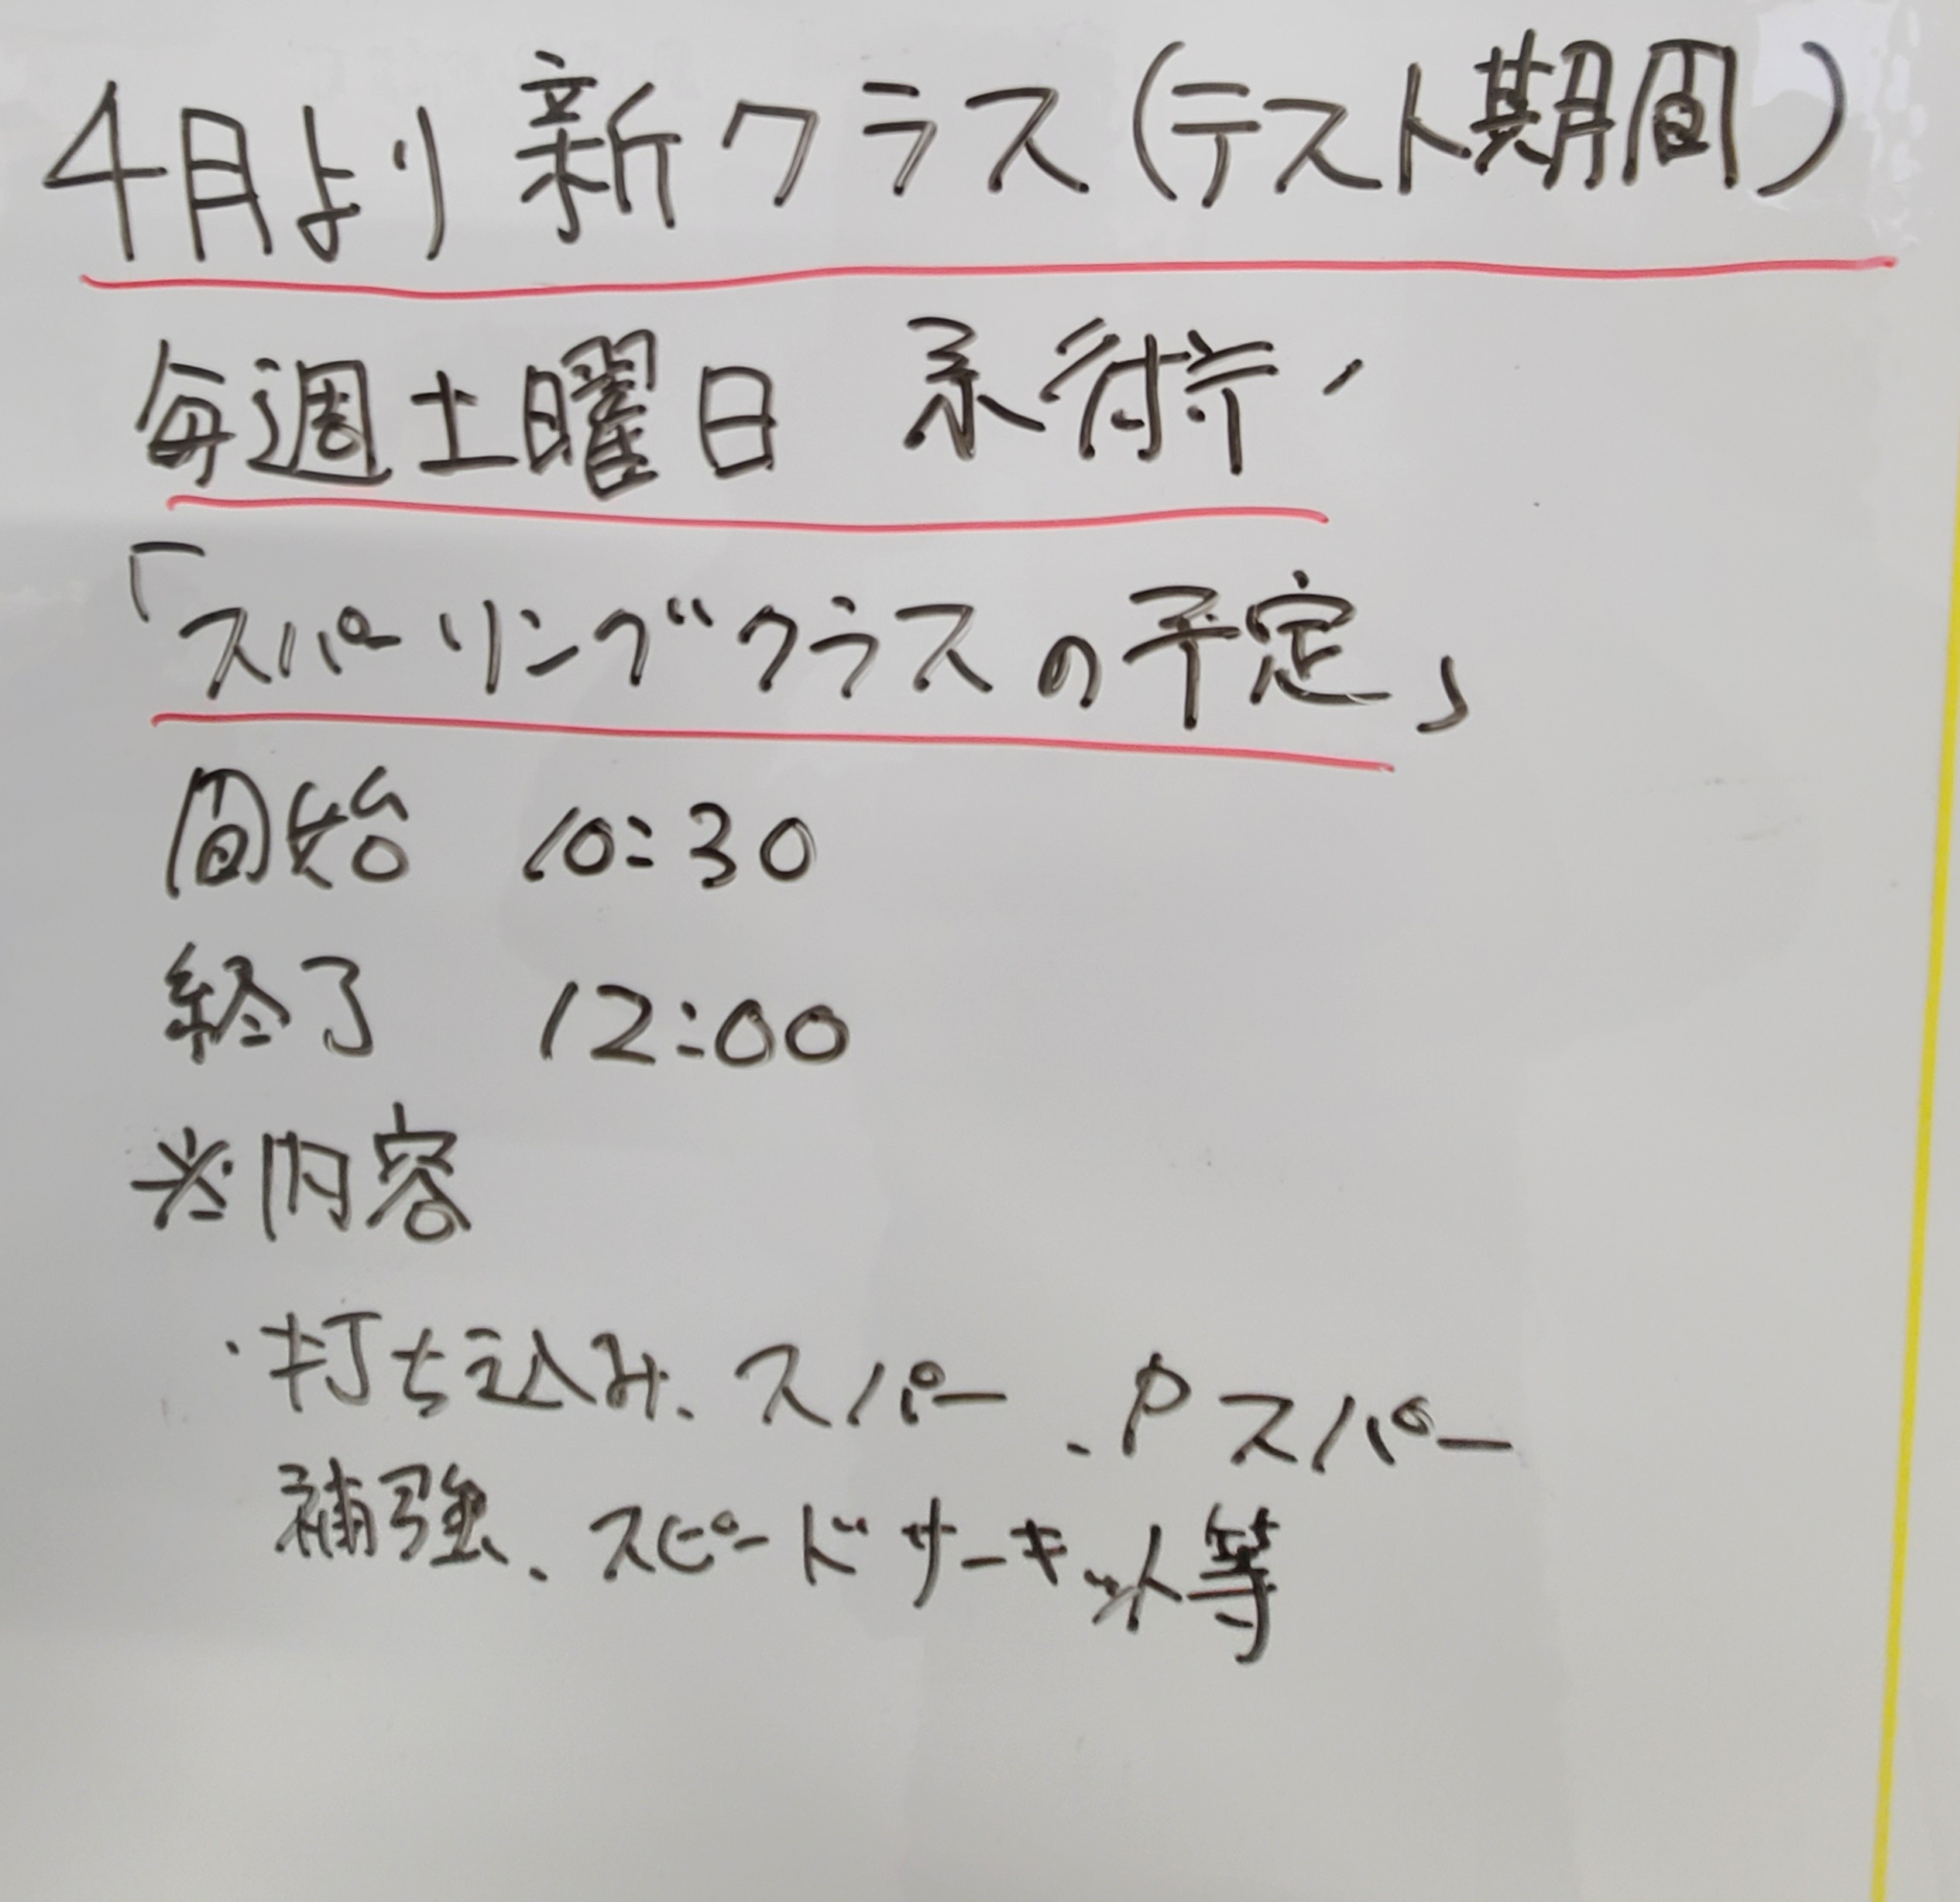 4月より 新クラス(テスト期間)
毎週土曜日 柔術
「スパーリングクラスの予定」
開始 10:30
終了 12:00
※内容
・打ち込み、スパー、Pスパー
補強、スピードサーキット等